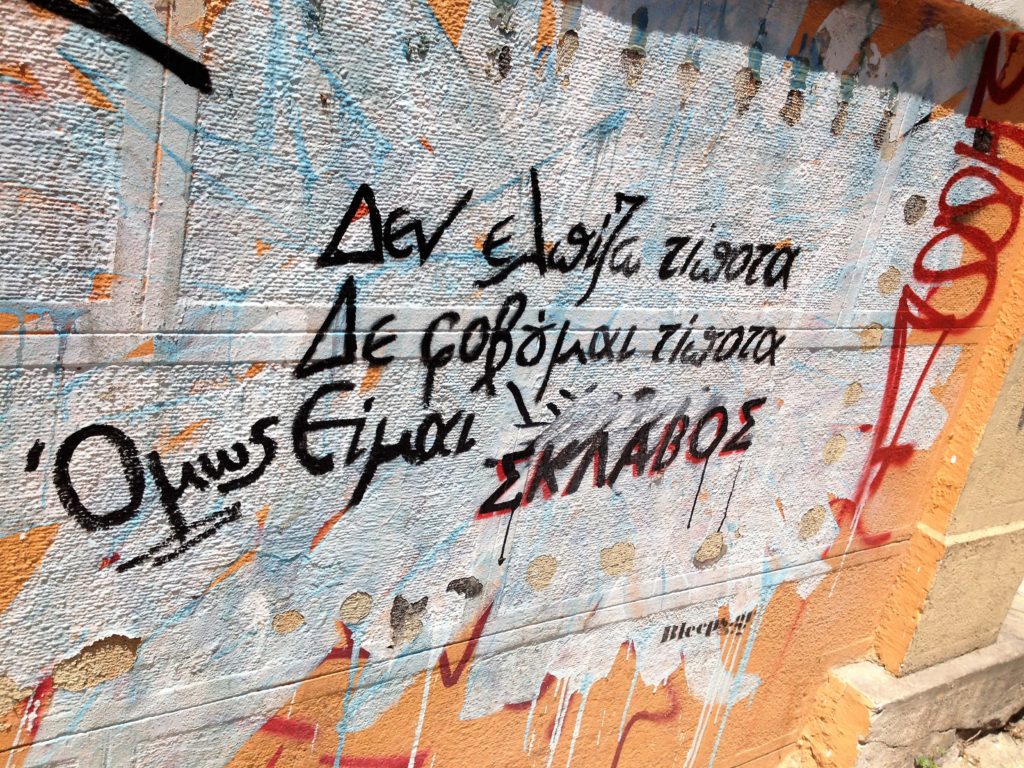 Δεν ελπίζω τίποτα
Δε φοβόμαι τίποτα
'Ομως Είμαι
ΣΚΛΑΒΟΣ
Bleeps.gr